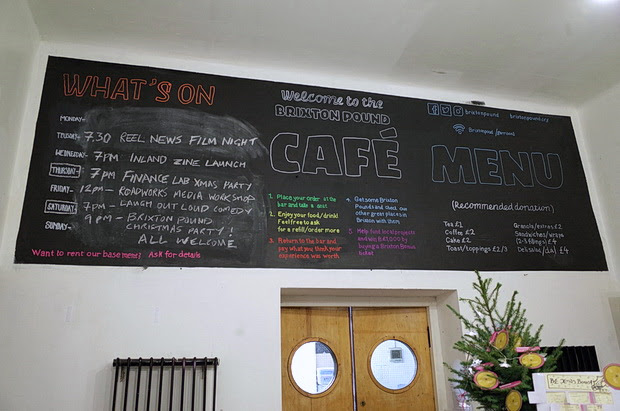 WHAT'S ON
MONDAY-
TUESDAY- 7.30 REEL NEWS FILM NIGHT
WEDNESDAY- 7PM INLAND ZINE LAUNCH
THURSDAY- 7PM FINANCE LAB XMAS PARTY
FRIDAY- 12PM - ROADWORKS MEDIA WORKSHOP
SATURDAY- 7PM - LAUGH OUT LOUD COMEDY
SUNDAY- 9PM - BRIXTON POUND
CHRISTMAS PARTY!
ALL WELCOME
Want to rent our basement? Ask for details
Welcome to the
BRIXTON POUND
CAFÉ
1. Place your order at the
bar and take a seat
2. Enjoy your food/drink!
Feel free to ask
for a refill/order more
3. Return to the bar and
pay what you think your
experience was worth
4. Get some Brixton
Pounds and check out
other great places in
Brixton with them
5. Help fund local projects
and win B£1,000 by
buying a Brixton Bonus
ticket
Brixtonpound brixtonpound.org
MENU
(Recommended donation)
Tea £1
Coffee £2
Cake £2
Toast/toppings £2/3
Granola/extras £2
Sandwiches/wraps
(2-3 fillings) £4